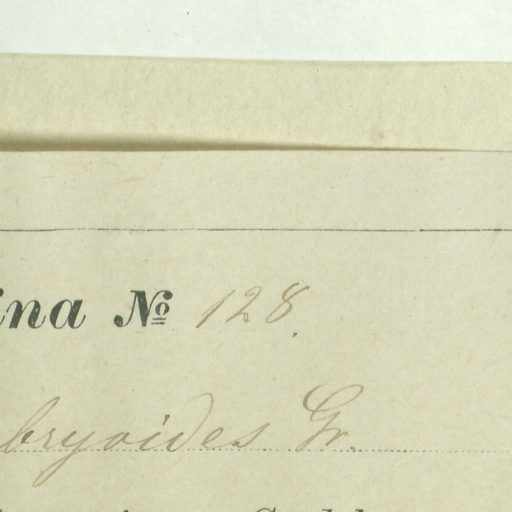 ina № 128.
bryoides Gr.